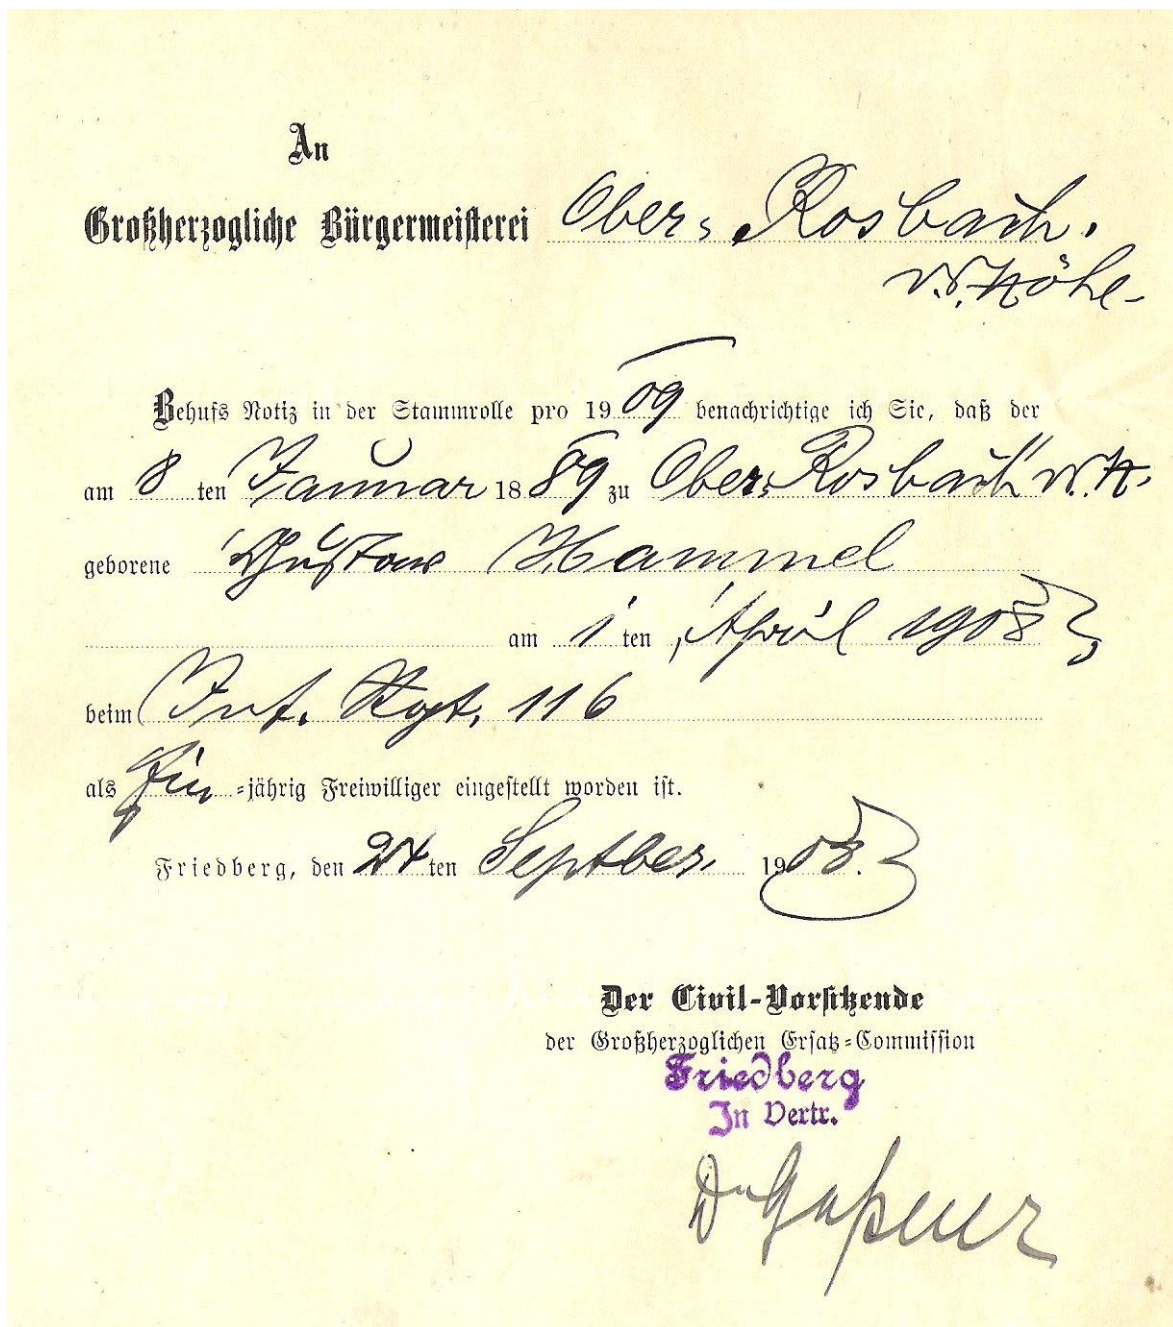 An
Großherzogliche Bürgermeisterei Ober-Rosbach.
v.d.Höhe-
Behufs Notiz in der Stammrolle pro 1909 benachrichtige ich Sie, daß der
am 8 ten Januar 1889 zu Ober-Rosbach v.d.H.
geborene Gustav Hammel
am 1 ten April 1908
beim Inf. Regt. 116
als Ein-jährig Freiwilliger eingestellt worden ist.
Friedberg, den 24 ten Septber. 1908.
Der Civil-Vorsitzende
der Großherzoglichen Ersatz-Commission
Friedberg
In Vertr.
Dr Gaßner